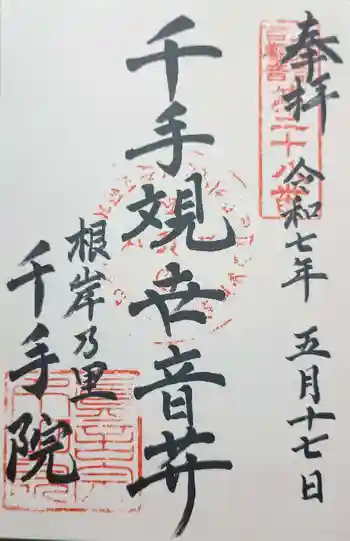 奉拝
令和七年
五月十七日
千手観世音𦬇
根岸乃里
千手院